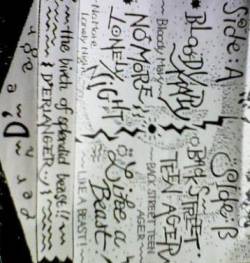 Side:A
BLOODY MARY
Bloody Mary
NO MORE
LONELY NIGHT
No More
Lonely Night
Side:B
BACK STREET
TEENAGER
BACK STREET TEEN
AGER
Like a
Beast
LIKE A BEAST!
the birth of splendid beast!!
D'ERLANGER